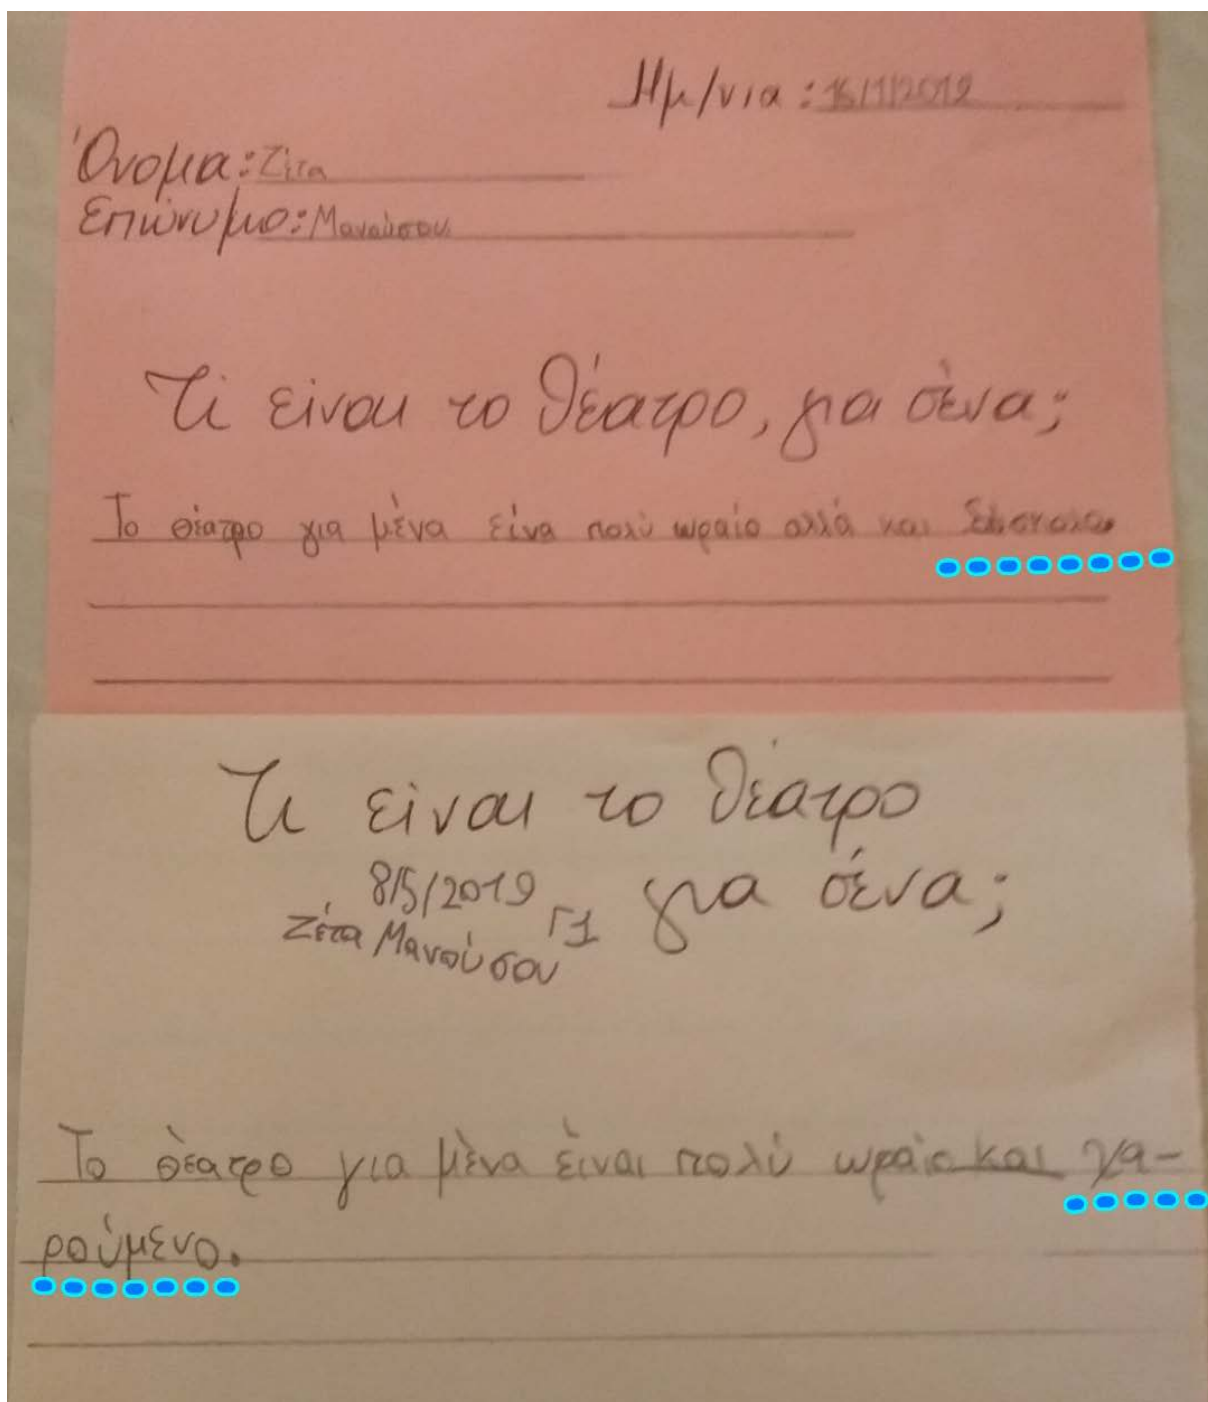 Ημ/νια: 16/1/2019
Όνομα: Ζέτα
Επώνυμο: Μανούσου
Τί είναι το θέατρο, για σένα;
Το θέατρο για μένα είνα πολύ ωραίο αλλά και
Τι είναι το θέατρο
για σένα;
8/5/2019
Ζέτα Μανούσου Γ1
Το θέατρο για μένα είναι πολύ ωραίο και χα-
ρούμενο.